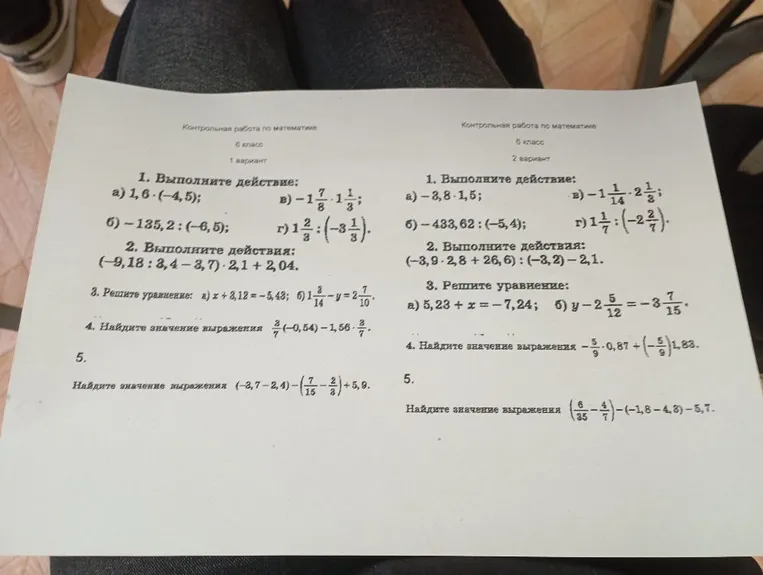 Контрольная работа по математике
6 класс
1 вариант
1. Выполните действие:
а) 1,6 · (–4,5); в) –1 7/8 · 1 1/3;
б) –135,2 : (–6,5); г) 1 2/3 : (–3 1/3).
2. Выполните действия:
(–9,18 : 3,4 – 3,7) · 2,1 + 2,04.
3. Решите уравнение: а) x + 3,12 = –5,43; б) 1 3/14 – y = 2 7/10.
4. Найдите значение выражения 3/7 (–0,54) – 1,56 · 3/7.
5.
Найдите значение выражения (–3,7 – 2,4) – (7/15 – 2/3) + 5,9.
Контрольная работа по математике
6 класс
2 вариант
1. Выполните действие:
а) –3,8 · 1,5; в) –1 1/14 · 2 1/3;
б) –433,62 : (–5,4); г) 1 1/7 : (–2 2/7).
2. Выполните действия:
(–3,9 · 2,8 + 26,6) : (–3,2) – 2,1.
3. Решите уравнение:
а) 5,23 + x = –7,24; б) y – 2 5/12 = –3 7/15.
4. Найдите значение выражения –5/9 · 0,87 + (–5/9) 1,83.
5.
Найдите значение выражения (6/35 – 4/7) – (–1,8 – 4,3) – 5,7.